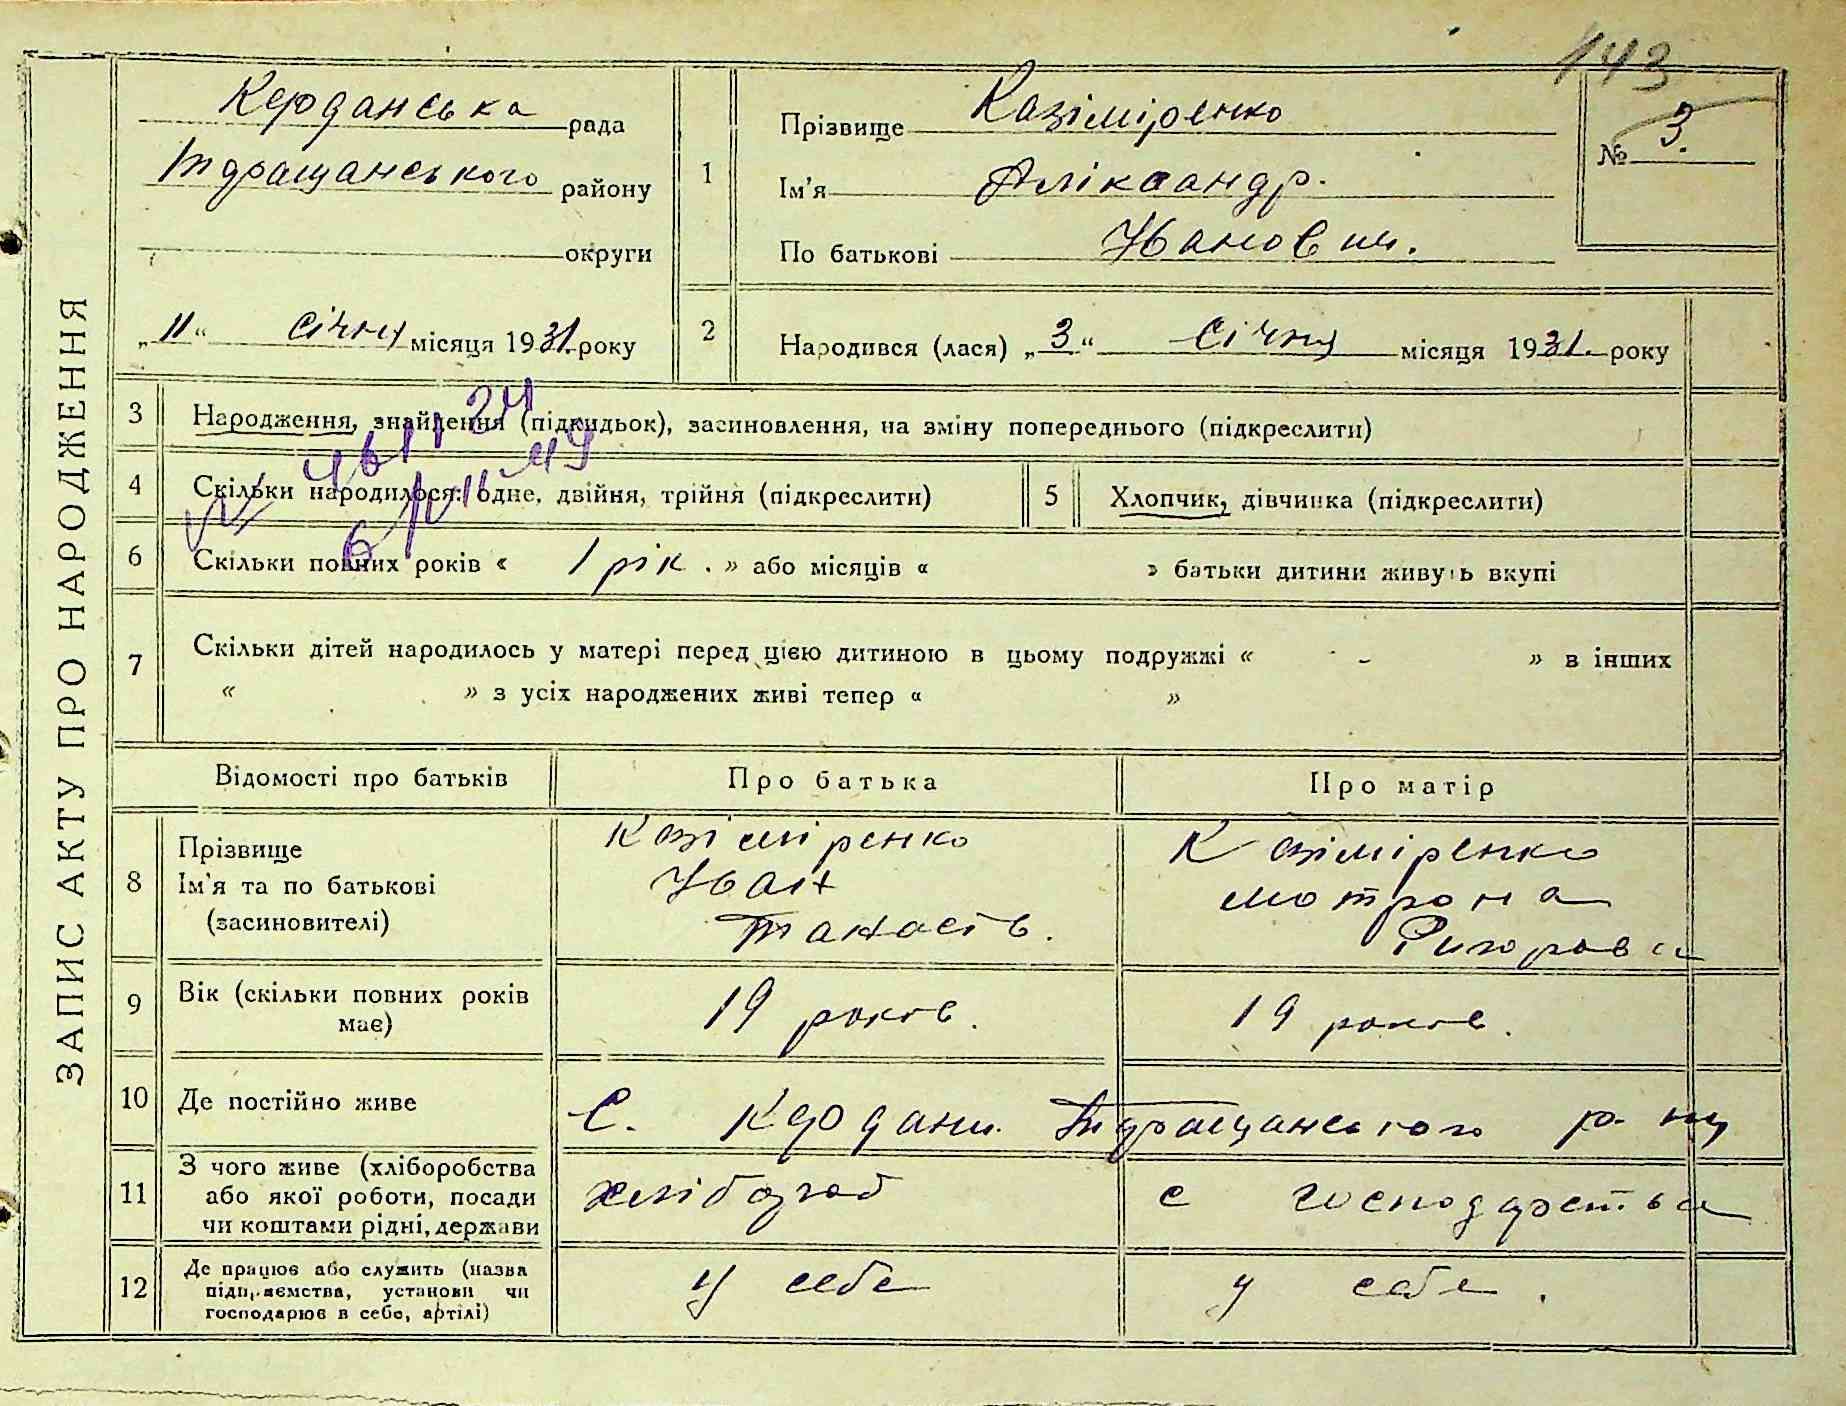 143
ЗАПИС АКТУ ПРО НАРОДЖЕННЯ
Керданська рада
Тиращанського району
округи
„11“ січня місяця 1931 року
1
Прізвище Казіміренко
Ім'я Аліксандр.
По батькові Иванович.
№ 3.
2
Народився (лася) „3“ Січня місяця 1931. року
3
Народження, знайдення (підкидьок), засиновлення, на зміну попереднього (підкреслити)
4
Скільки народилося: одне, двійня, трійня (підкреслити)
5
Хлопчик, дівчинка (підкреслити)
6
Скільки повних років « 1 рік . » або місяців « » батьки дитини живуть вкупі
7
Скільки дітей народилось у матері перед цією дитиною в цьому подружжі « - » в інших
« » з усіх народжених живі тепер « »
Відомості про батьків
Про батька
Про матір
8
Прізвище
Ім'я та по батькові
(засиновителі)
Казіміренко
Иван
Танасів.
Казіміренко
мотрона
Ригоровна
9
Вік (скільки повних років
має)
19 років.
19 років.
10
Де постійно живе
С. Кердани. Тиращанського р-ну
11
З чого живе (хліборобства
або якої роботи, посади
чи коштами рідні, держави
хлібороб
с господарства
12
Де працює або служить (назва
підприємства, установи чи
господарює в себе, артілі)
у себе
у себе.